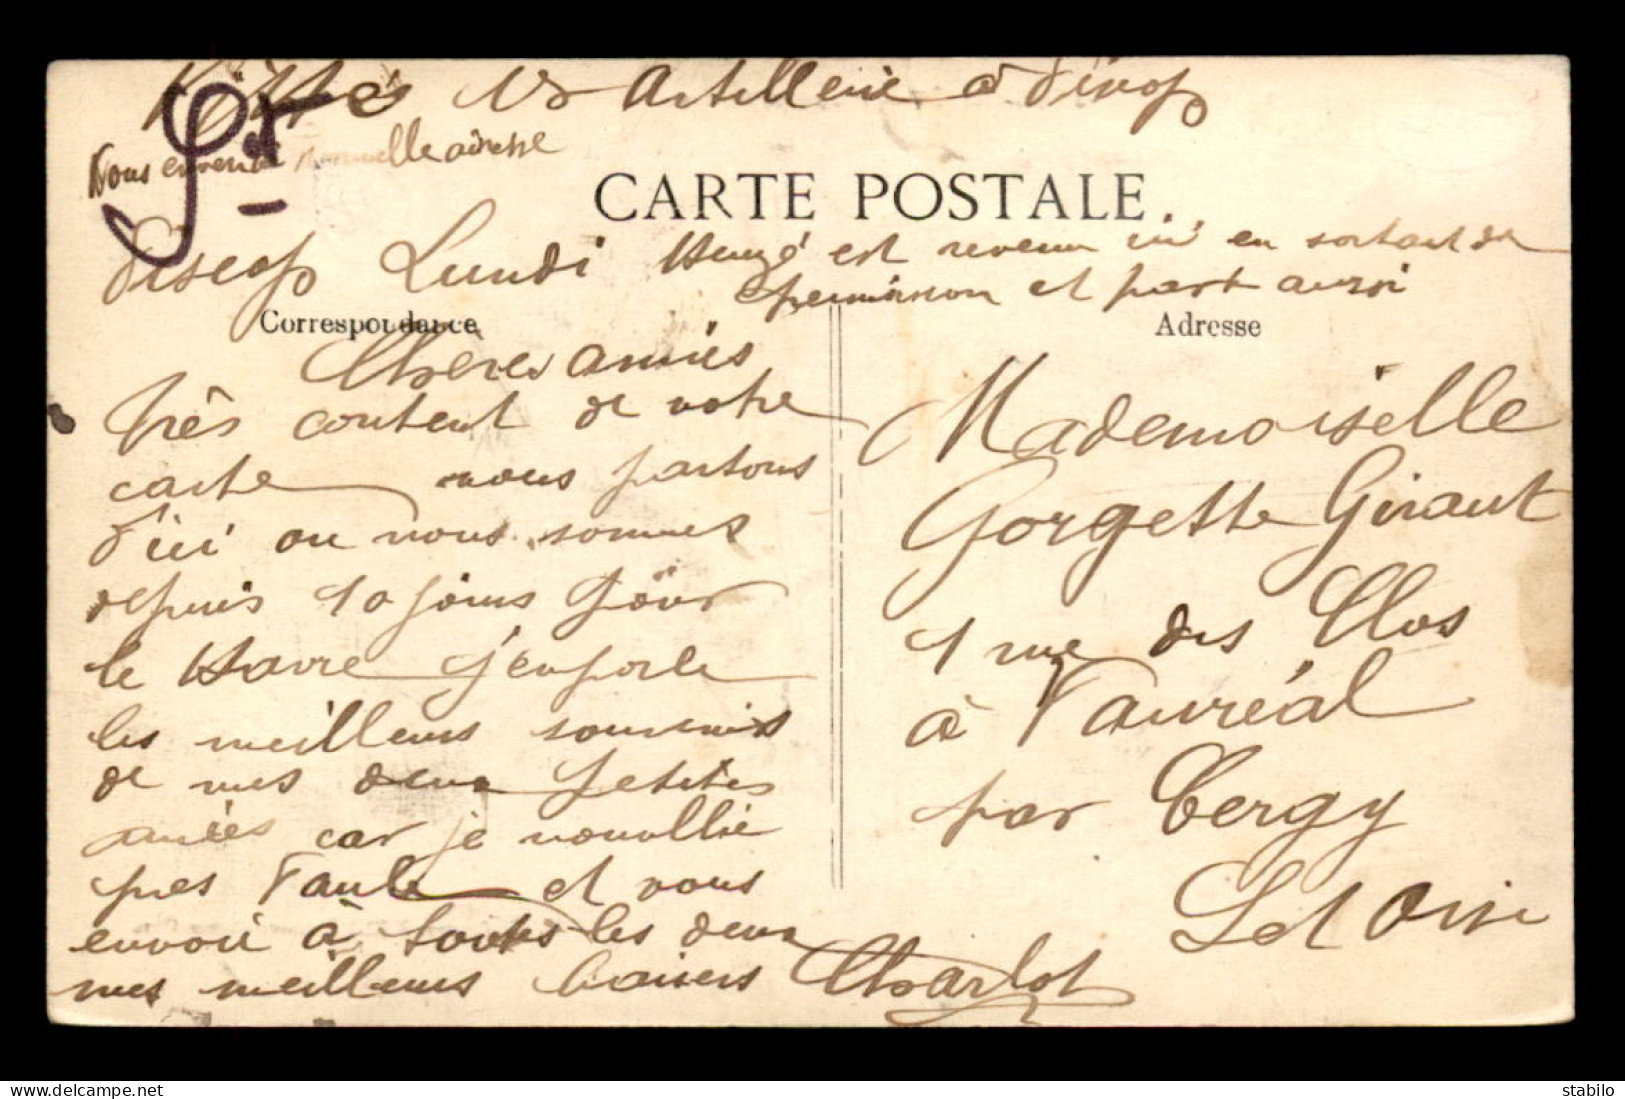 15 Artillerie à
Vous enverrai nouvelle adresse
CARTE POSTALE
Lundi est revenu ici en sortant de
permission et part aussi
Correspondance
Adresse
Chères amies
Très content de votre
carte nous partons
d'ici ou nous sommes
depuis 10 jours pour
le Havre j'emporte
les meilleurs souvenirs
de mes deux petites
amies car je
pas Paule et vous
envoie à toutes les deux
mes meilleurs baisers Charlot
Mademoiselle
Gorgette Giraut
1 rue des Clos
à Vauréal
par Cergy
S et Oise